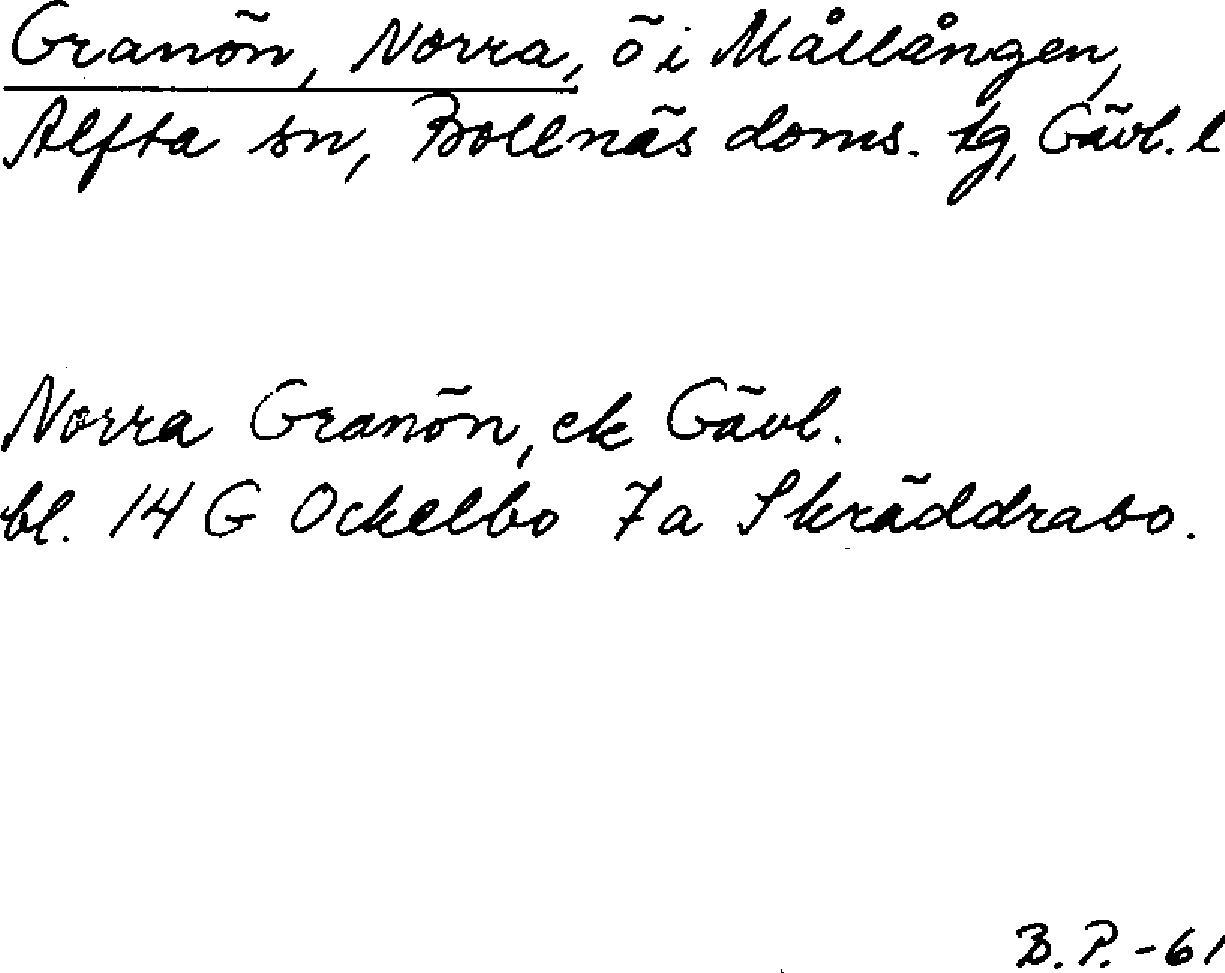 Granön, Norra, ö i Mållången,
Alfta sn, Bollnäs doms. tg, Gävl. l
Norra Granön, ek Gävl.
bl. 14 G Ockelbo 7a Skräddrabo.
B. P. -61